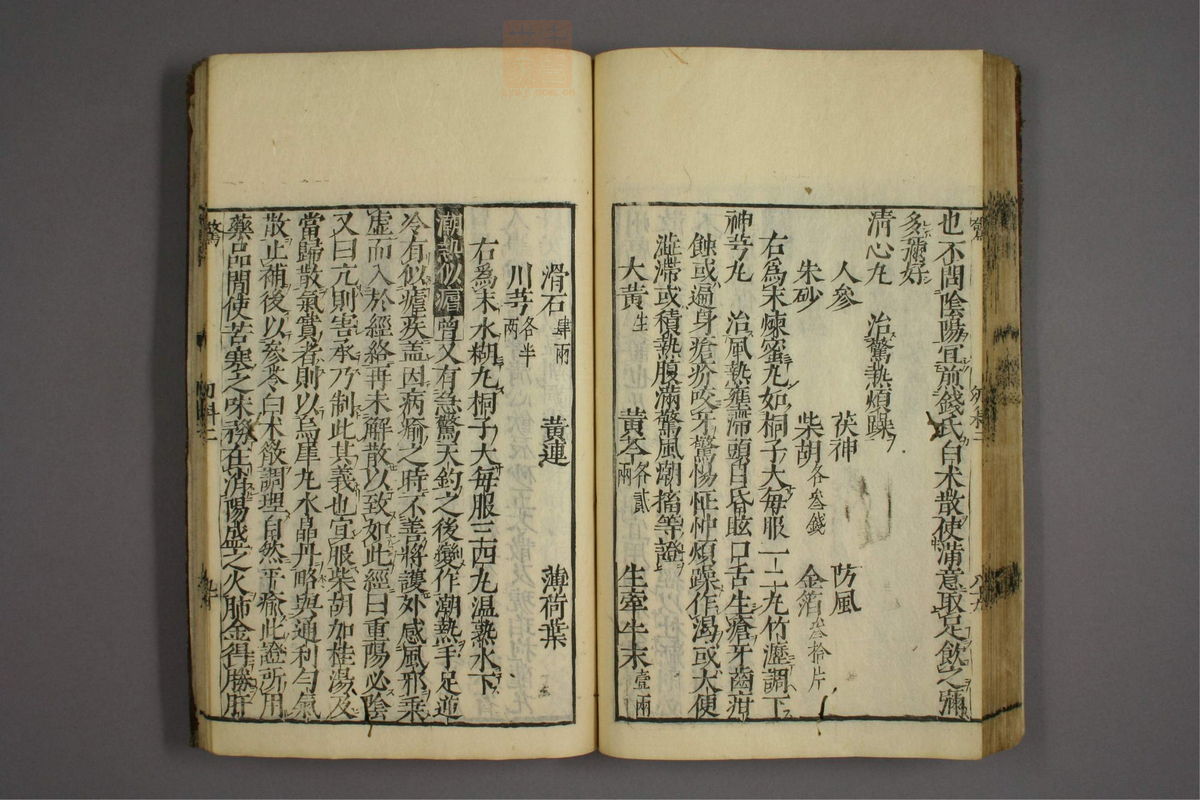 也不問陰陽宜煎錢氏白朮散使滿意取足飲之彌
多彌好
清心丸　治驚熱煩躁
人參　茯神　防風
朱砂　柴胡各叄錢　金箔叄拾片
右爲末煉蜜丸如桐子大每服一二丸竹瀝調下
神芎丸　治風熱壅滯頭目昏眩口舌生瘡牙齒疳
蝕或遍身瘡疥咬牙驚惕怔忡煩躁作渴或大便
澁滯或積熱腹滿驚風潮搐等證
大黃生　黃芩各貳兩　生牽牛末壹兩
滑石肆兩　黃連　薄荷葉
川芎各半兩
右爲末水糊丸桐子大每服三四丸温熟水下
潮熱似瘧　曾又有急驚天釣之後變作潮熱手足逆
冷有似瘧疾蓋因病瘉之時不善將護外感風邪乘
虛而入於經絡再未解散以致如此經曰重陽必陰
又曰亢則害承乃制此其義也宜服柴胡加桂湯及
當歸散氣實者則以烏犀丸水晶丹略與通利匀氣
散止補後以參苓白朮散調理自然平瘉此證所用
藥品間使苦寒之味務在消陽盛之火肺金得勝肝